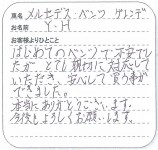 車名 メルセデス・ベンツ ゲレンデ
お名前 Y・H
お客様よりひとこと
はじめてのベンツで不安でし
たが とても親切に対応して
いただき、安心して買う事が
できました。
本当にありがとうございます。
今後もよろしくお願いします。